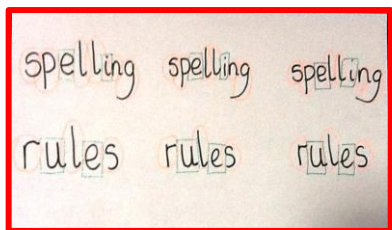 spelling spelling spelling
rules rules rules